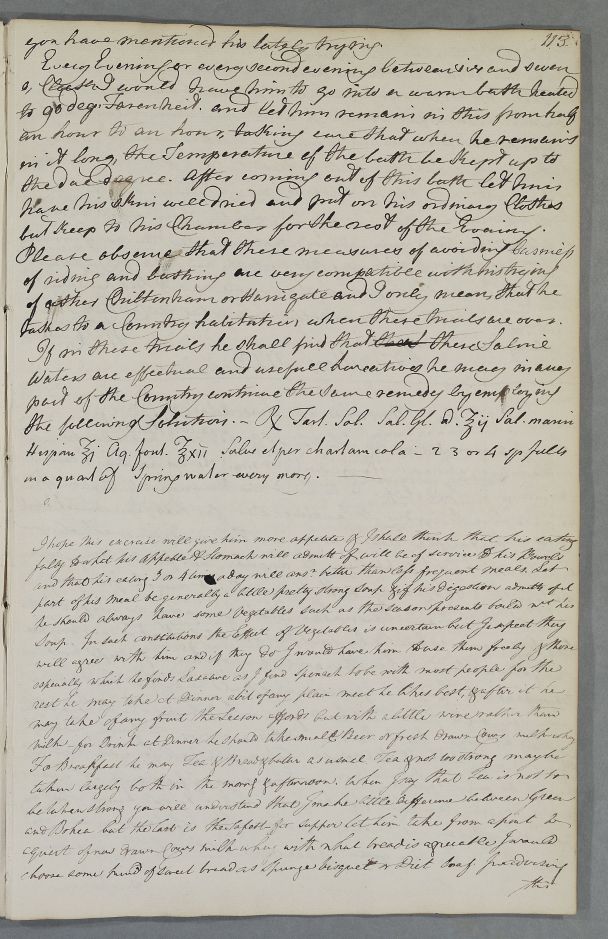 113
you have mentioned his lately trying
Every Evening or every second evening between six and seven
o, Clock I would have him to go into a warm bath heated
to 96 deg. Farenheit. and let him remain in this from half
an hour to an hour, taking care that when he remains
in it long, the Temperature of the bath be kept up to
the due degree. After coming out of this bath let him
have his skin well dried and put on his ordinary Clothes
but keep to his Chamber for the rest of the Evening.
Please observe that these measures of avoiding
of riding and bathing are very compatible with his trying
of either Cheltenham or Harrigate and I only mean that he
to a Country habitation when these trials are over.
If in these trials he shall find that these Saline
Waters are effectual and usefull he may in any
part of the Country continue the same remedy by employing
the following Solution. - ℞ Tart. Sol. Sal. Gl. a. ʒij Sal. marin
Hispan ʒj Aq. font. ℥xii Solve et per chartam cola - 2 3 or 4 spfulls
in a quart of Spring water every morg.
I hope this exercise will give him more appetite & I shall think that his eating
fully to what his Appetite & Stomach will admitt of will be of service to his Bowels
and that his eating 3 or 4 times a day will answr. better than less frequent meals. Let
part of his meal be generally a little pretty strong Soup & if his digestion admitts of it
he should always have some Vegetables such as the Season presents boild in his
Soup. In such constitutions the Effect of Vegetables is uncertain but I expect they
will agree with him and if they do I would have him to use them freely & those
especially which he finds Laxative as I find Spinach to be with most people for the
rest he may take at Dinner a bit of any plain meat he likes best, & after it he
may take of any fruit the Season affords but with a little wine rather than
milk. for Drink at Dinner he should take small Beer or fresh drawn Cows milk whey
For Breakfast he may Tea & Bread & butter as usual. Tea & not too strong may be
taken largely both in the morng & afternoon. When I say that Tea is not to
be taken strong you will understand that I make little difference between Green
and Bohea but the last is the safest - for Supper let him take from a pint to
a quart of new drawn Cows milk whey with what bread is agreeable I would
choose some kind of sweet bread as Spunge bisquet or Diet loaf. In advising
this